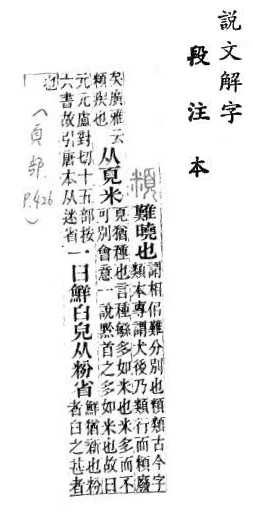 說文解字
段注本
頪
難曉也
謂相侣難分別也頪類古今字
類本專謂犬後乃類行而頪廢
矣廣雅云
頪疾也
从頁米
頁猶種也言種緐多如米也米多而不
可別會意一說黔首之多如米也故曰
元元盧對切十五部按
六書故引唐本从迷省
一曰鮮白皃从粉省
鮮猶新也粉
者白之甚者
也
(頁部 P.426)